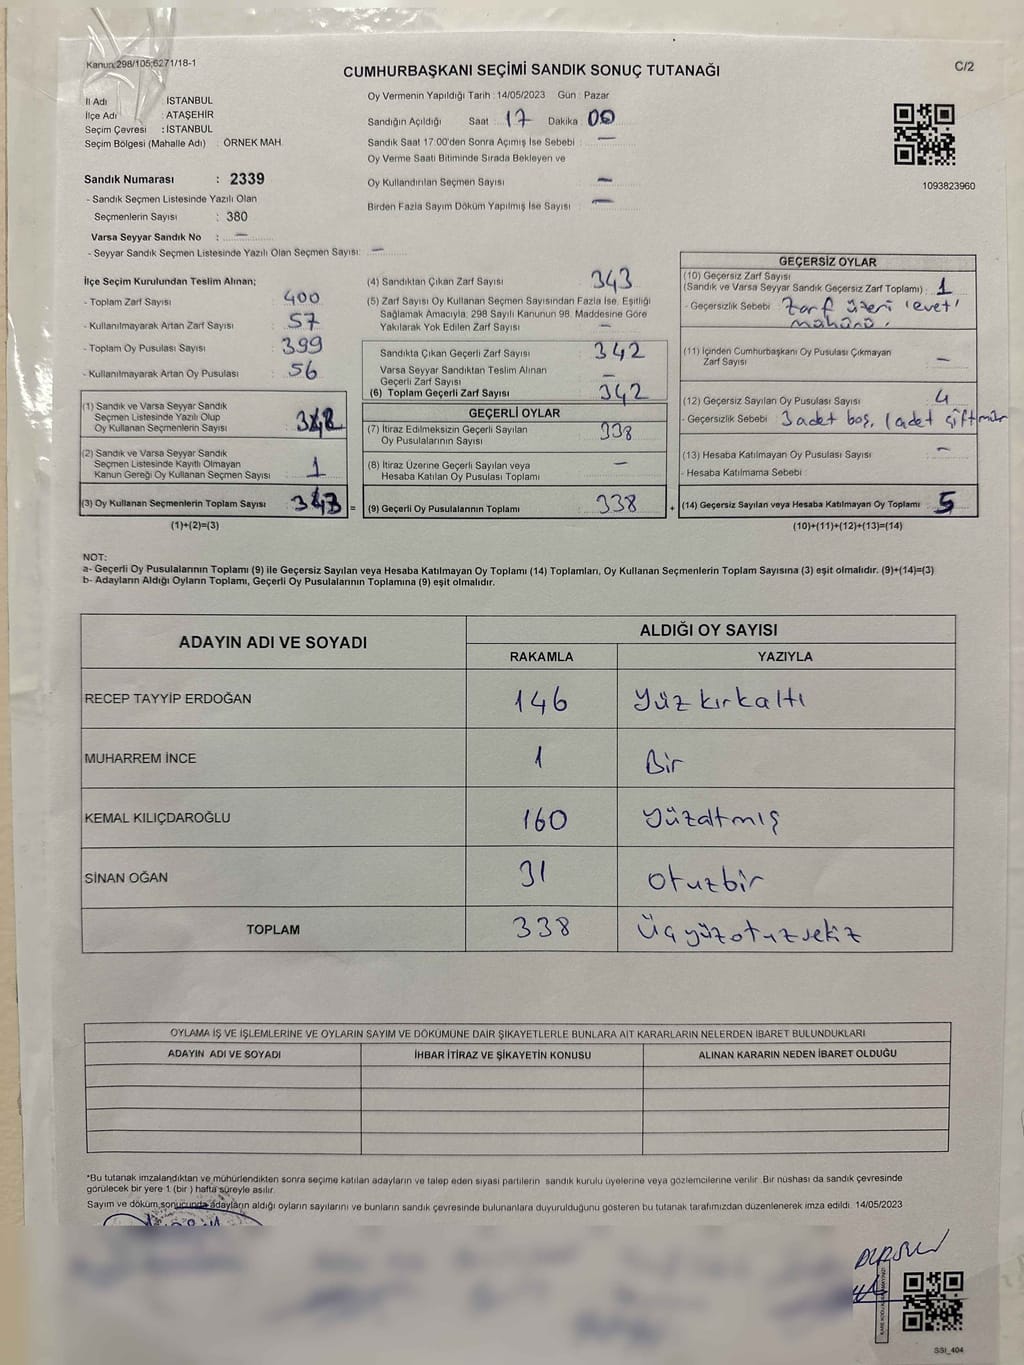 Kanun:298/105;6271/18-1
C/2
CUMHURBAŞKANI SEÇİMİ SANDIK SONUÇ TUTANAĞI
İl Adı : İSTANBUL
İlçe Adı : ATAŞEHİR
Seçim Çevresi : İSTANBUL
Seçim Bölgesi (Mahalle Adı) : ÖRNEK MAH.
Oy Vermenin Yapıldığı Tarih : 14/05/2023 Gün : Pazar
Sandığın Açıldığı Saat : 17 Dakika : 00
Sandık Saat 17:00'den Sonra Açılmış İse Sebebi : —
Oy Verme Saati Bitiminde Sırada Bekleyen ve
Oy Kullandırılan Seçmen Sayısı : —
Birden Fazla Sayım Döküm Yapılmış İse Sayısı : —
1093823960
Sandık Numarası : 2339
- Sandık Seçmen Listesinde Yazılı Olan
Seçmenlerin Sayısı : 380
Varsa Seyyar Sandık No : —
- Seyyar Sandık Seçmen Listesinde Yazılı Olan Seçmen Sayısı: —
İlçe Seçim Kurulundan Teslim Alınan;
- Toplam Zarf Sayısı : 400
- Kullanılmayarak Artan Zarf Sayısı : 57
- Toplam Oy Pusulası Sayısı : 399
- Kullanılmayarak Artan Oy Pusulası : 56
(1) Sandık ve Varsa Seyyar Sandık
Seçmen Listesinde Yazılı Olup
Oy Kullanan Seçmenlerin Sayısı : 342
(2) Sandık ve Varsa Seyyar Sandık
Seçmen Listesinde Kayıtlı Olmayan
Kanun Gereği Oy Kullanan Seçmen Sayısı : 1
(3) Oy Kullanan Seçmenlerin Toplam Sayısı : 343
(1)+(2)=(3)
(4) Sandıktan Çıkan Zarf Sayısı : 343
(5) Zarf Sayısı Oy Kullanan Seçmen Sayısından Fazla İse, Eşitliği
Sağlamak Amacıyla, 298 Sayılı Kanunun 98. Maddesine Göre
Yakılarak Yok Edilen Zarf Sayısı : —
Sandıkta Çıkan Geçerli Zarf Sayısı : 342
Varsa Seyyar Sandıktan Teslim Alınan
Geçerli Zarf Sayısı : —
(6) Toplam Geçerli Zarf Sayısı : 342
GEÇERLİ OYLAR
(7) İtiraz Edilmeksizin Geçerli Sayılan
Oy Pusulalarının Sayısı : 338
(8) İtiraz Üzerine Geçerli Sayılan veya
Hesaba Katılan Oy Pusulası Toplamı : —
= (9) Geçerli Oy Pusulalarının Toplamı : 338 +
GEÇERSİZ OYLAR
(10) Geçersiz Zarf Sayısı
(Sandık ve Varsa Seyyar Sandık Geçersiz Zarf Toplamı) : 1
- Geçersizlik Sebebi : Zarf üzeri 'evet'
mührü.
(11) İçinden Cumhurbaşkanı Oy Pusulası Çıkmayan
Zarf Sayısı : —
(12) Geçersiz Sayılan Oy Pusulası Sayısı : 4
- Geçersizlik Sebebi : 3 adet boş, 1 adet çift mühür
(13) Hesaba Katılmayan Oy Pusulası Sayısı : —
- Hesaba Katılmama Sebebi :
(14) Geçersiz Sayılan veya Hesaba Katılmayan Oy Toplamı : 5
(10)+(11)+(12)+(13)=(14)
NOT:
a- Geçerli Oy Pusulalarının Toplamı (9) ile Geçersiz Sayılan veya Hesaba Katılmayan Oy Toplamı (14) Toplamları, Oy Kullanan Seçmenlerin Toplam Sayısına (3) eşit olmalıdır. (9)+(14)=(3)
b- Adayların Aldığı Oyların Toplamı, Geçerli Oy Pusulalarının Toplamına (9) eşit olmalıdır.
ADAYIN ADI VE SOYADI
ALDIĞI OY SAYISI
RAKAMLA YAZIYLA
RECEP TAYYİP ERDOĞAN 146 Yüz kırkaltı
MUHARREM İNCE 1 Bir
KEMAL KILIÇDAROĞLU 160 Yüzaltmış
SİNAN OĞAN 31 Otuzbir
TOPLAM 338 Üçyüzotuzsekiz
OYLAMA İŞ VE İŞLEMLERİNE VE OYLARIN SAYIM VE DÖKÜMÜNE DAİR ŞİKAYETLERLE BUNLARA AİT KARARLARIN NELERDEN İBARET BULUNDUKLARI
ADAYIN ADI VE SOYADI İHBAR İTİRAZ VE ŞİKAYETİN KONUSU ALINAN KARARIN NEDEN İBARET OLDUĞU
*Bu tutanak imzalandıktan ve mühürlendikten sonra seçime katılan adayların ve talep eden siyasi partilerin sandık kurulu üyelerine veya gözlemcilerine verilir. Bir nüshası da sandık çevresinde
görülecek bir yere 1 (bir) hafta süreyle asılır.
Sayım ve döküm sonucunda adayların aldığı oyların sayılarını ve bunların sandık çevresinde bulunanlara duyurulduğunu gösteren bu tutanak tarafımızdan düzenlenerek imza edildi. 14/05/2023
SSI_404